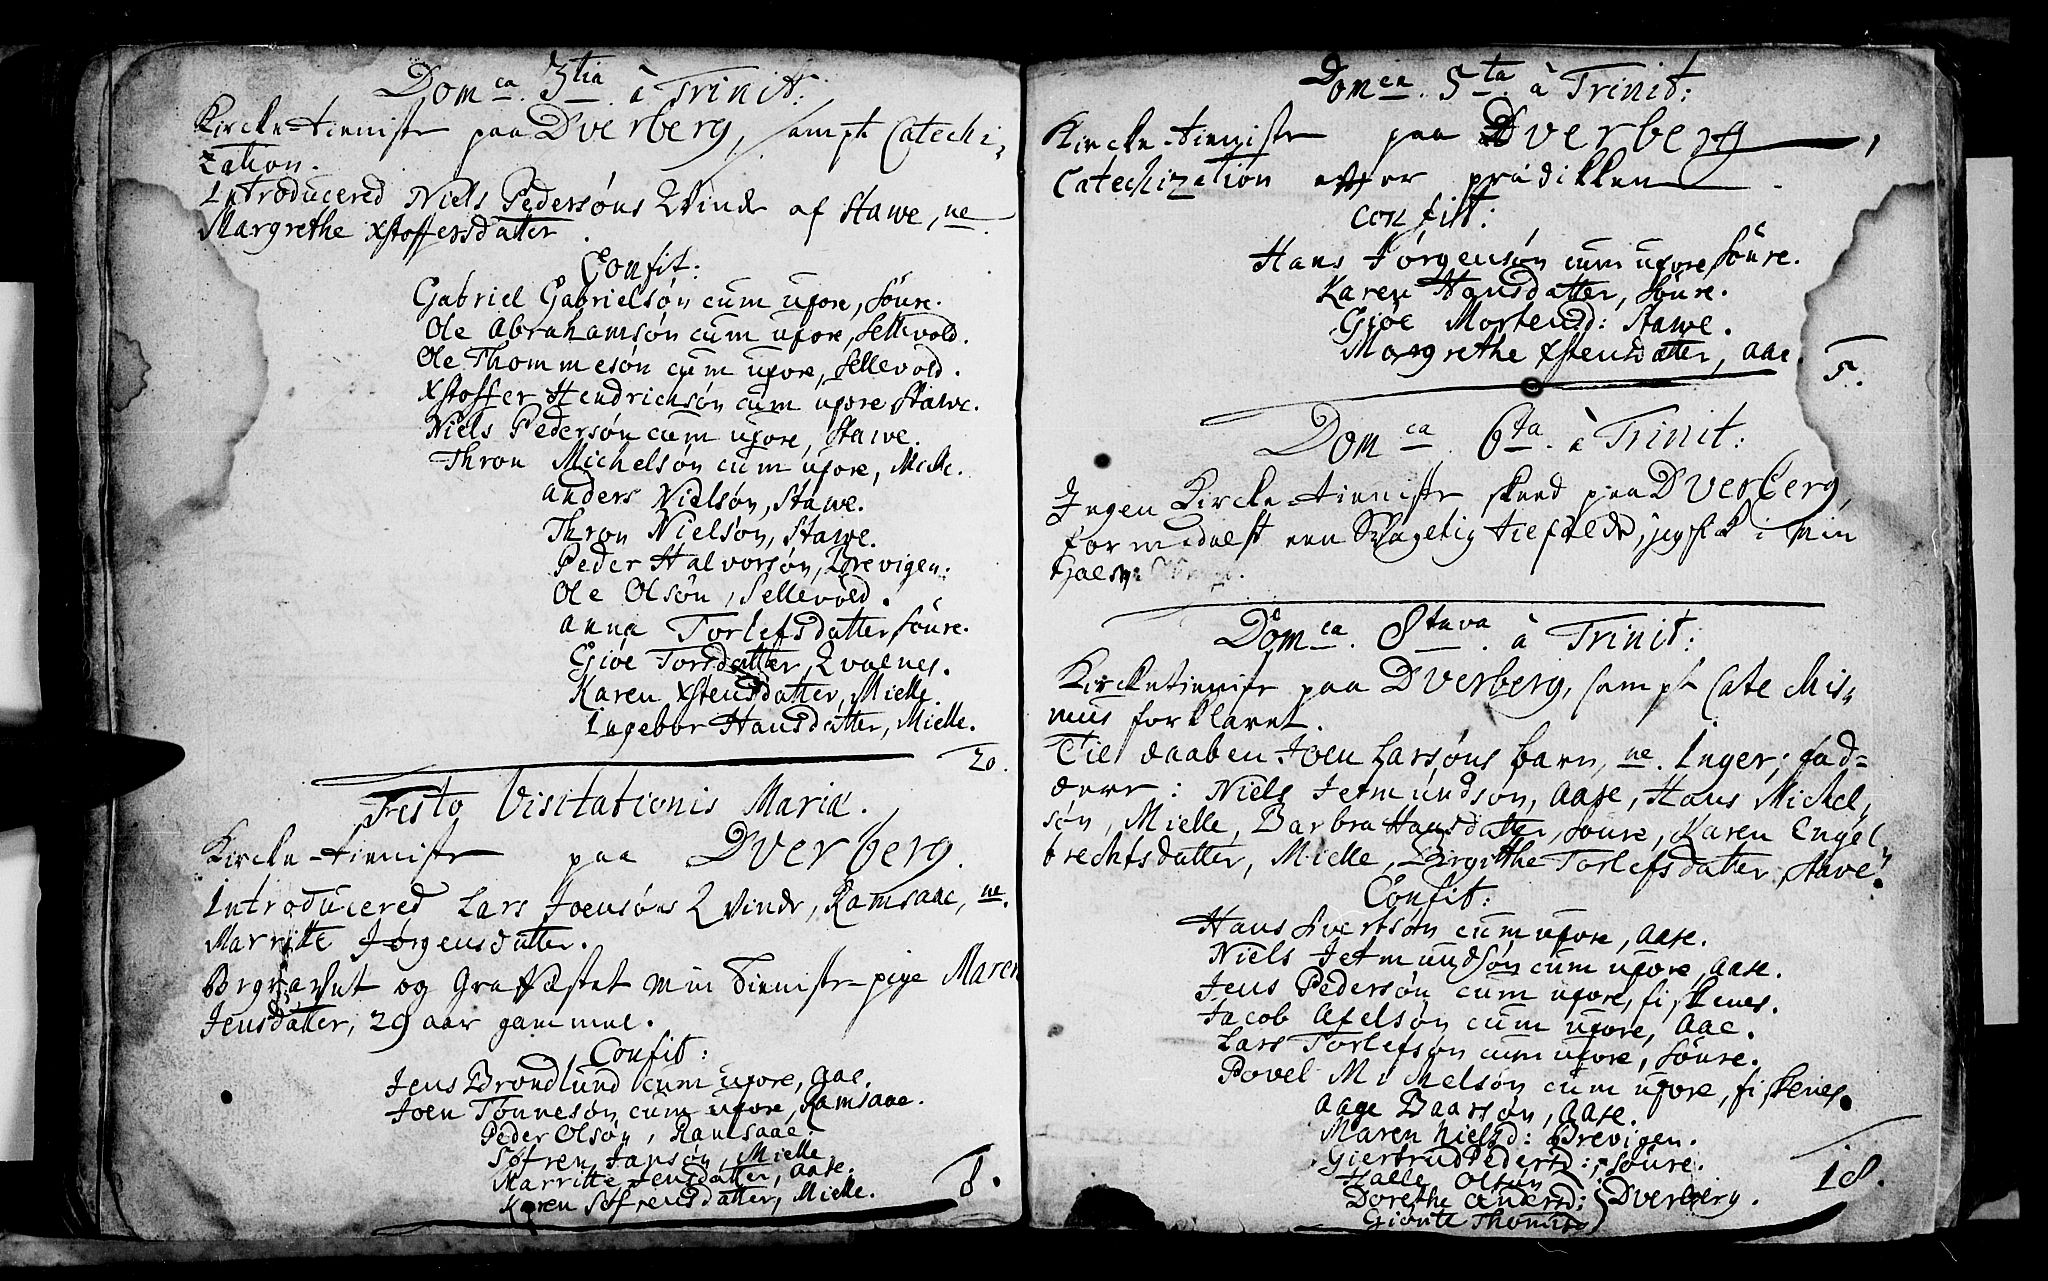 Dom ca. 3tia. à Trinit:
Kircke-tieniste paa Dverberg, sampt Catechi-
zation.
Introducered Niels Pedersøns Qvinde af Stawe, ne.
Margrethe Xstoffersdatter.
Confit:
Gabriel Gabrielsøn cum uxore, Söure.
Ole Abrahamsøn cum uxore, Sellevold.
Ole Thommesøn cum uxore, Sellevold.
Xstoffer Hendrichsøn cum uxore Stawe.
Niels Pedersøn cum uxore, Stawe.
Thron Michelsøn cum uxore, Miele.
Anders Nielsøn, Stawe.
Thron Nielsøn, Stawe.
Peder Halvorsøn, Brevigen.
Ole Olsøn, Sellevold.
Anna Torlefsdatter Söure.
Giøe Torsdatter, Qvalnes.
Karen Xstensdatter, Mielle.
Ingebor Hansdatter, Mielle.
20.
Festo Visitationis Mariæ.
Kircke-tieniste paa Dverberg.
Introducered Lars Joensøns Qvinde, Ramsaae, ne.
Marritte Jørgensdatter.
Begravet og Grafkastet min Tieniste-pige Maren
Jensdatter, 29 aar gammel.
Confit:
Jens Brondlund cum uxore, Aae.
Joen Tønnesøn cum uxore, Ramsaae.
Peder Olsøn, Ramsaae.
Søfren Jansøn, Mielle
Marritte Jensdatter, Aase.
Karen Søfrensdatter, Mielle.
8.
Dom ca. 5ta. à Trinit:
Kircke-tieniste paa Dverberg,
Catechization efter prædikken.
Confit:
Hans Jørgensøn cum uxore Söure.
Karen Hansdatter, Söure.
Giøe Mortensd: Stawe.
Margrethe Xstensdatter, Aae.
5.
Dom ca. 6ta. à Trinit:
Ingen Kircke-tieniste skeed paa Dverberg,
formedelst een tiefelde, jeg fik i min
Dom ca. 8tava. à Trinit:
Kircketieniste paa Dverberg, sampt Catechis-
mus forklaret.
Til daaben Joen Larsøns barn, ne. Inger; fad-
dere: Niels Jetmundsøn, Aase, Hans Michel-
søn, Mielle, Barbra Hansdatter, Söure, Karen Engel-
brechtsdatter, Mielle, Birgitthe Torlefsdatter, Stave.
Confit:
Hans Ivertsøn cum uxore, Aase.
Niels Jetmundsøn cum uxore, Aase.
Jens Pedersøn cum uxore, fiskenes.
Jacob Axelsøn cum uxore, Aae.
Lars Torlefsøn cum uxore, Söure.
Povel Michelsøn cum uxore, fiskenes.
Aage Baarsøn, Aase.
Maren Nielsd: Brevigen.
Giertrud Pedersd:, Söure.
Halle Olsøn
Dorethe Andersd: } Dverberg.
Gionte
18.